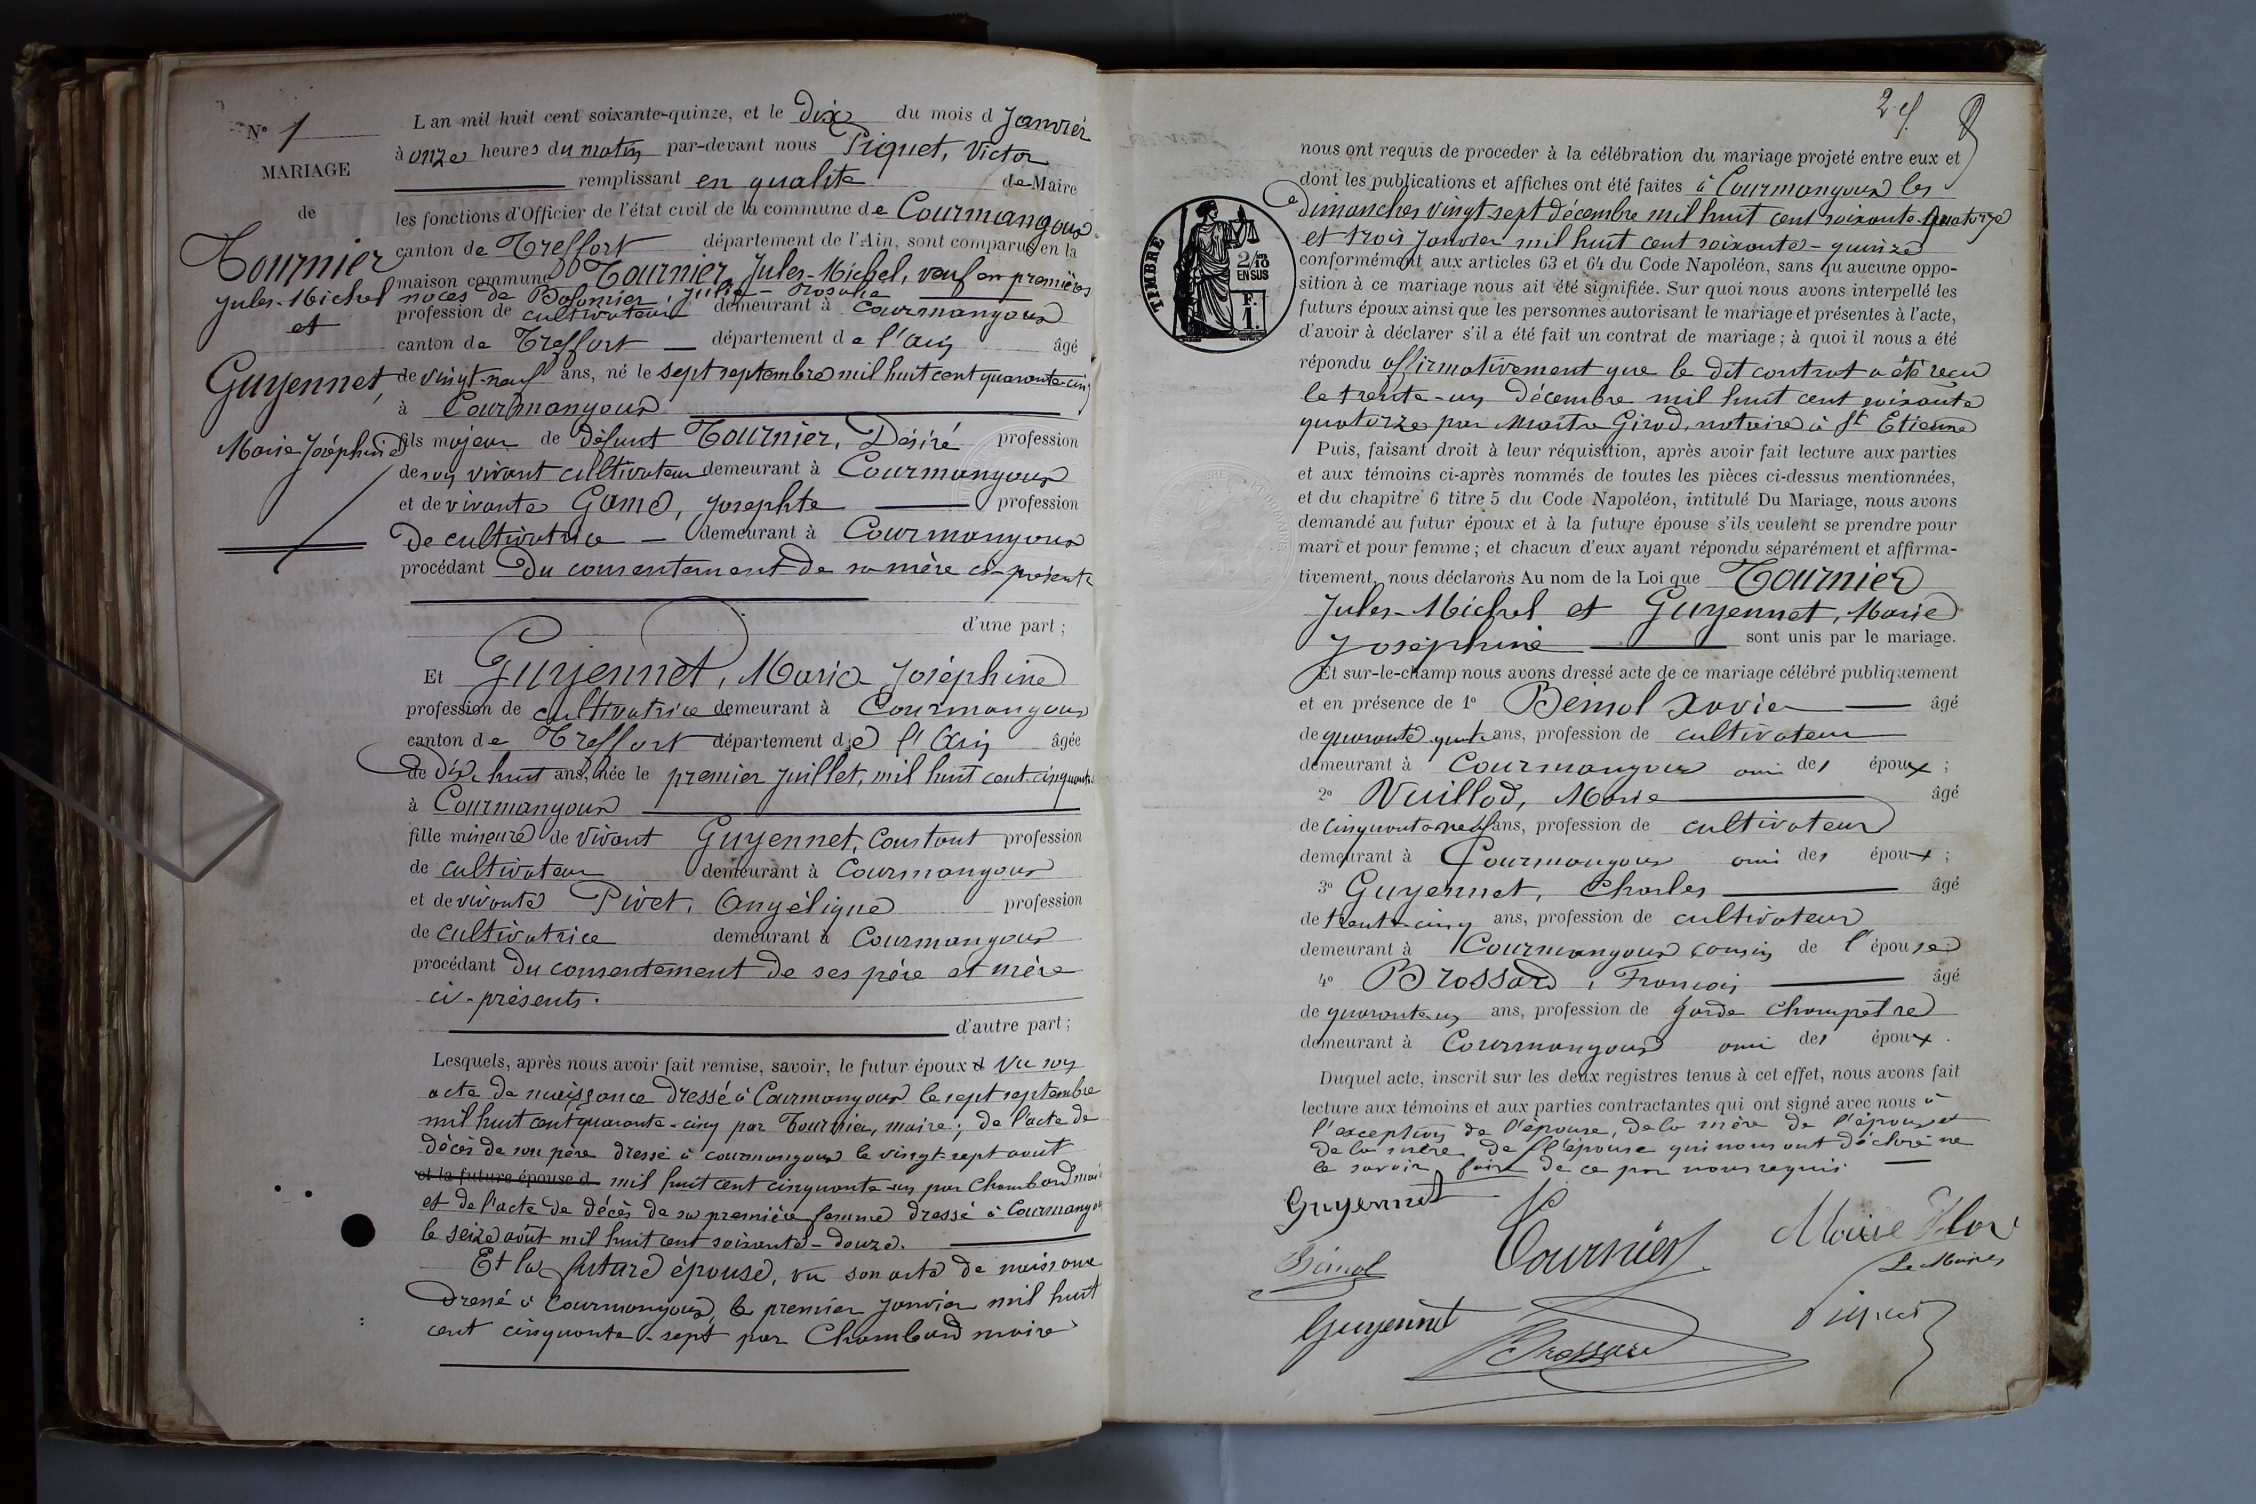 N° 1
MARIAGE
de
Tournier
Jules-Michel
et
Guyennet,
Marie Joséphine
L an mil huit cent soixante-quinze, et le dix du mois d Janvier
à onze heures du matin par-devant nous Piquet, Victor
remplissant en qualité de Maire
les fonctions d'Officier de l'état civil de la commune de Courmangoux
canton de Treffort département de l'Ain, sont comparus en la
maison commune Tournier, Jules-Michel, veuf en premières
noces de Bolomier, Julie-Rosalie
profession de cultivateur demeurant à Courmangoux
canton de Treffort département de l'Ain âgé
de vingt-neuf ans, né le sept septembre mil huit cent quarante-cinq
à Courmangoux
fils majeur de défunt Tournier, Désiré profession
de son vivant cultivateur demeurant à Courmangoux
et de vivante Game, Josephte profession
de cultivatrice demeurant à Courmangoux
procédant du consentement de sa mère ci-présente
d'une part ;
Et Guyennet, Marie Joséphine
profession de cultivatrice demeurant à Courmangoux
canton de Treffort département de l'Ain âgée
de dix-huit ans, née le premier juillet, mil huit cent cinquante
à Courmangoux
fille mineure de vivant Guyennet, Constant profession
de cultivateur demeurant à Courmangoux
et de vivante Pivet, Angélique profession
de cultivatrice demeurant à Courmangoux
procédant du consentement de ses père et mère
ci-présents.
d'autre part ;
Lesquels, après nous avoir fait remise, savoir, le futur époux d Vu son
acte de naissance dressé à Courmangoux le sept septembre
mil huit cent quarante-cinq par Tournier, maire ; de l'acte de
décès de son père dressé à Courmangoux le vingt-sept août
et la future épouse d mil huit cent cinquante-un par Chambard maire
et de l'acte de décès de sa première femme dressé à Courmangoux
le seize août mil huit cent soixante-douze.
Et la future épouse, vu son acte de naissance
dressé à Courmangoux, le premier janvier mil huit
cent cinquante-sept par Chambard maire
nous ont requis de proceder à la célébration du mariage projeté entre eux et
dont les publications et affiches ont été faites à Courmangoux les
dimanches vingt-sept décembre mil huit cent soixante-quatorze
et trois Janvier mil huit cent soixante-quinze
conformément aux articles 63 et 64 du Code Napoléon, sans qu'aucune oppo-
sition à ce mariage nous ait été signifiée. Sur quoi nous avons interpellé les
futurs époux ainsi que les personnes autorisant le mariage et présentes à l'acte,
d'avoir à déclarer s'il a été fait un contrat de mariage ; à quoi il nous a été
répondu affirmativement que le dit contrat a été reçu
le trente-un Décembre mil huit cent soixante
quatorze par Maître Girod, notaire à St Etienne
Puis, faisant droit à leur réquisition, après avoir fait lecture aux parties
et aux témoins ci-après nommés de toutes les pièces ci-dessus mentionnées,
et du chapitre 6 titre 5 du Code Napoléon, intitulé Du Mariage, nous avons
demandé au futur époux et à la future épouse s'ils veulent se prendre pour
mari et pour femme ; et chacun d'eux ayant répondu séparément et affirma-
tivement, nous déclarons Au nom de la Loi que Tournier
Jules-Michel et Guyennet, Marie
Joséphine sont unis par le mariage.
Et sur-le-champ nous avons dressé acte de ce mariage célébré publiquement
et en présence de 1° Beinol Xavier âgé
de quarante ans, profession de cultivateur
demeurant à Courmangoux ami des époux ;
2° Vuillod, Marie âgé
de cinquante neuf ans, profession de cultivateur
demeurant à Courmangoux ami des époux ;
3° Guyennet, Charles âgé
de trente-cinq ans, profession de cultivateur
demeurant à Courmangoux cousin de l'épouse
4° Brossard, François âgé
de quarante un ans, profession de garde champêtre
demeurant à Courmangoux ami des époux.
Duquel acte, inscrit sur les deux registres tenus à cet effet, nous avons fait
lecture aux témoins et aux parties contractantes qui ont signé avec nous à
l'exception de l'épouse, de la mère de l'époux et
de la mère de l'épouse qui nous ont déclaré ne
le savoir faire de ce par nous requis.
Guyennet
Tournier
Beinol
Le Maire
Guyennet
Brossard
Piquet
TIMBRE
2/10
EN SUS
F.
1.